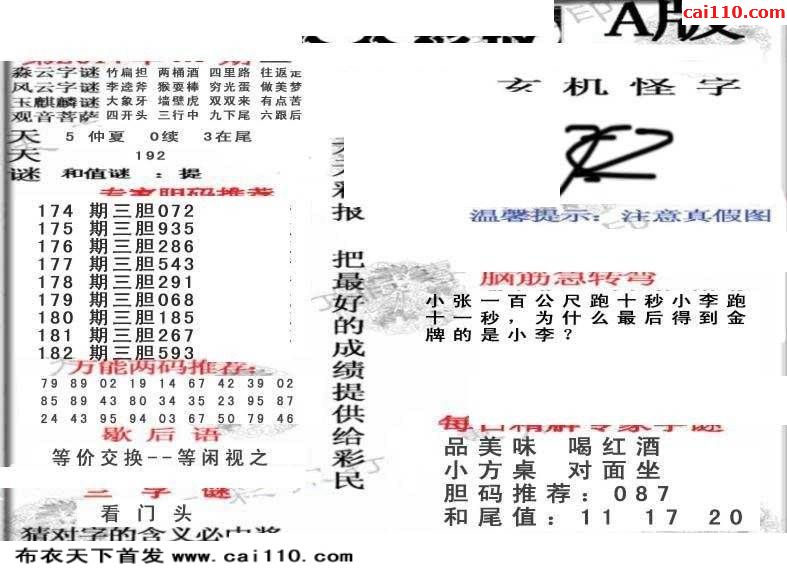 cai110.com
A版
森云字谜 竹扁担 两桶酒 四里路 往返走
风云字谜 李逵斧 猴耍棒 穷光蛋 做美梦
玉麒麟谜 大象牙 墙壁虎 双双来 有点苦
观音菩萨 四开头 三行中 九下尾 六跟后
天 5 仲夏 0续 3在尾
天 192
谜 和值谜 : 提
专家胆码推荐
174 期三胆072
175 期三胆935
176 期三胆286
177 期三胆543
178 期三胆291
179 期三胆068
180 期三胆185
181 期三胆267
182 期三胆593
万能两码推荐:
79 89 02 19 14 67 42 39 02
85 89 43 80 34 35 23 95 87
24 43 95 94 03 67 50 79 46
歇后语
等价交换--等闲视之
三字谜
看门头
猜对字的含义必中奖
彩报 把最好的成绩提供给彩民
玄机怪字
温馨提示: 注意真假图
脑筋急转弯
小张一百公尺跑十秒小李跑
十一秒，为什么最后得到金
牌的是小李？
每日精解专家字谜
品美味 喝红酒
小方桌 对面坐
胆码推荐: 087
和尾值: 11 17 20
布衣天下首发 www.cai110.com